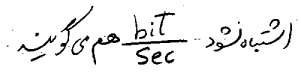 اشتباه نشود bit/sec هم می گویند